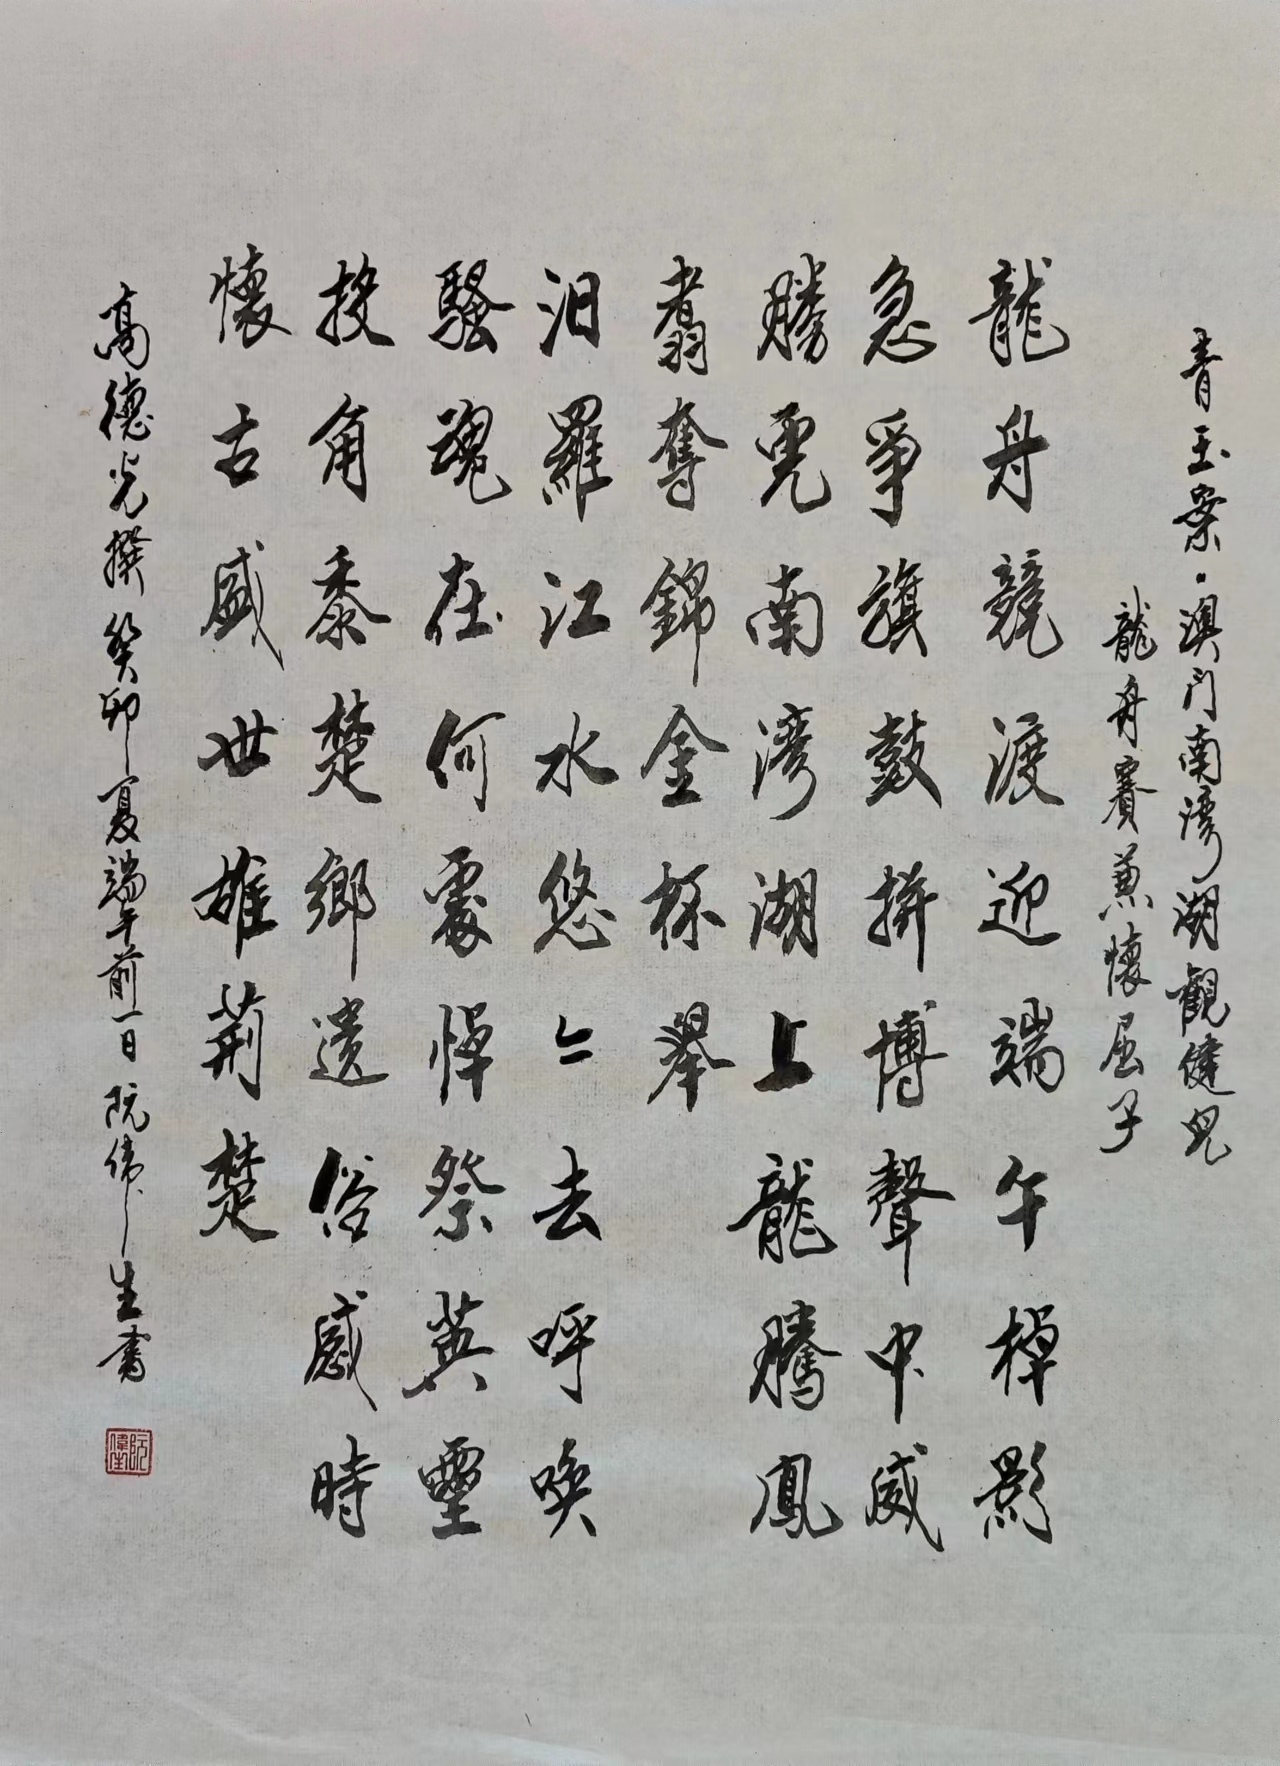 青玉案·澳门南湾湖觀健児
龍舟賽兼懷屈子
龍舟競渡迎端午棹影
急爭旗鼓拚博聲中威
勝虎南湾湖上龍騰鳳
翥奪錦金杯舉
汨羅江水悠々去呼喚
騷魂在何處悼祭英靈
投角黍楚鄉遺俗感時
懷古盛世雄荊楚
高德光撰癸卯夏端午前一日阮偉生書